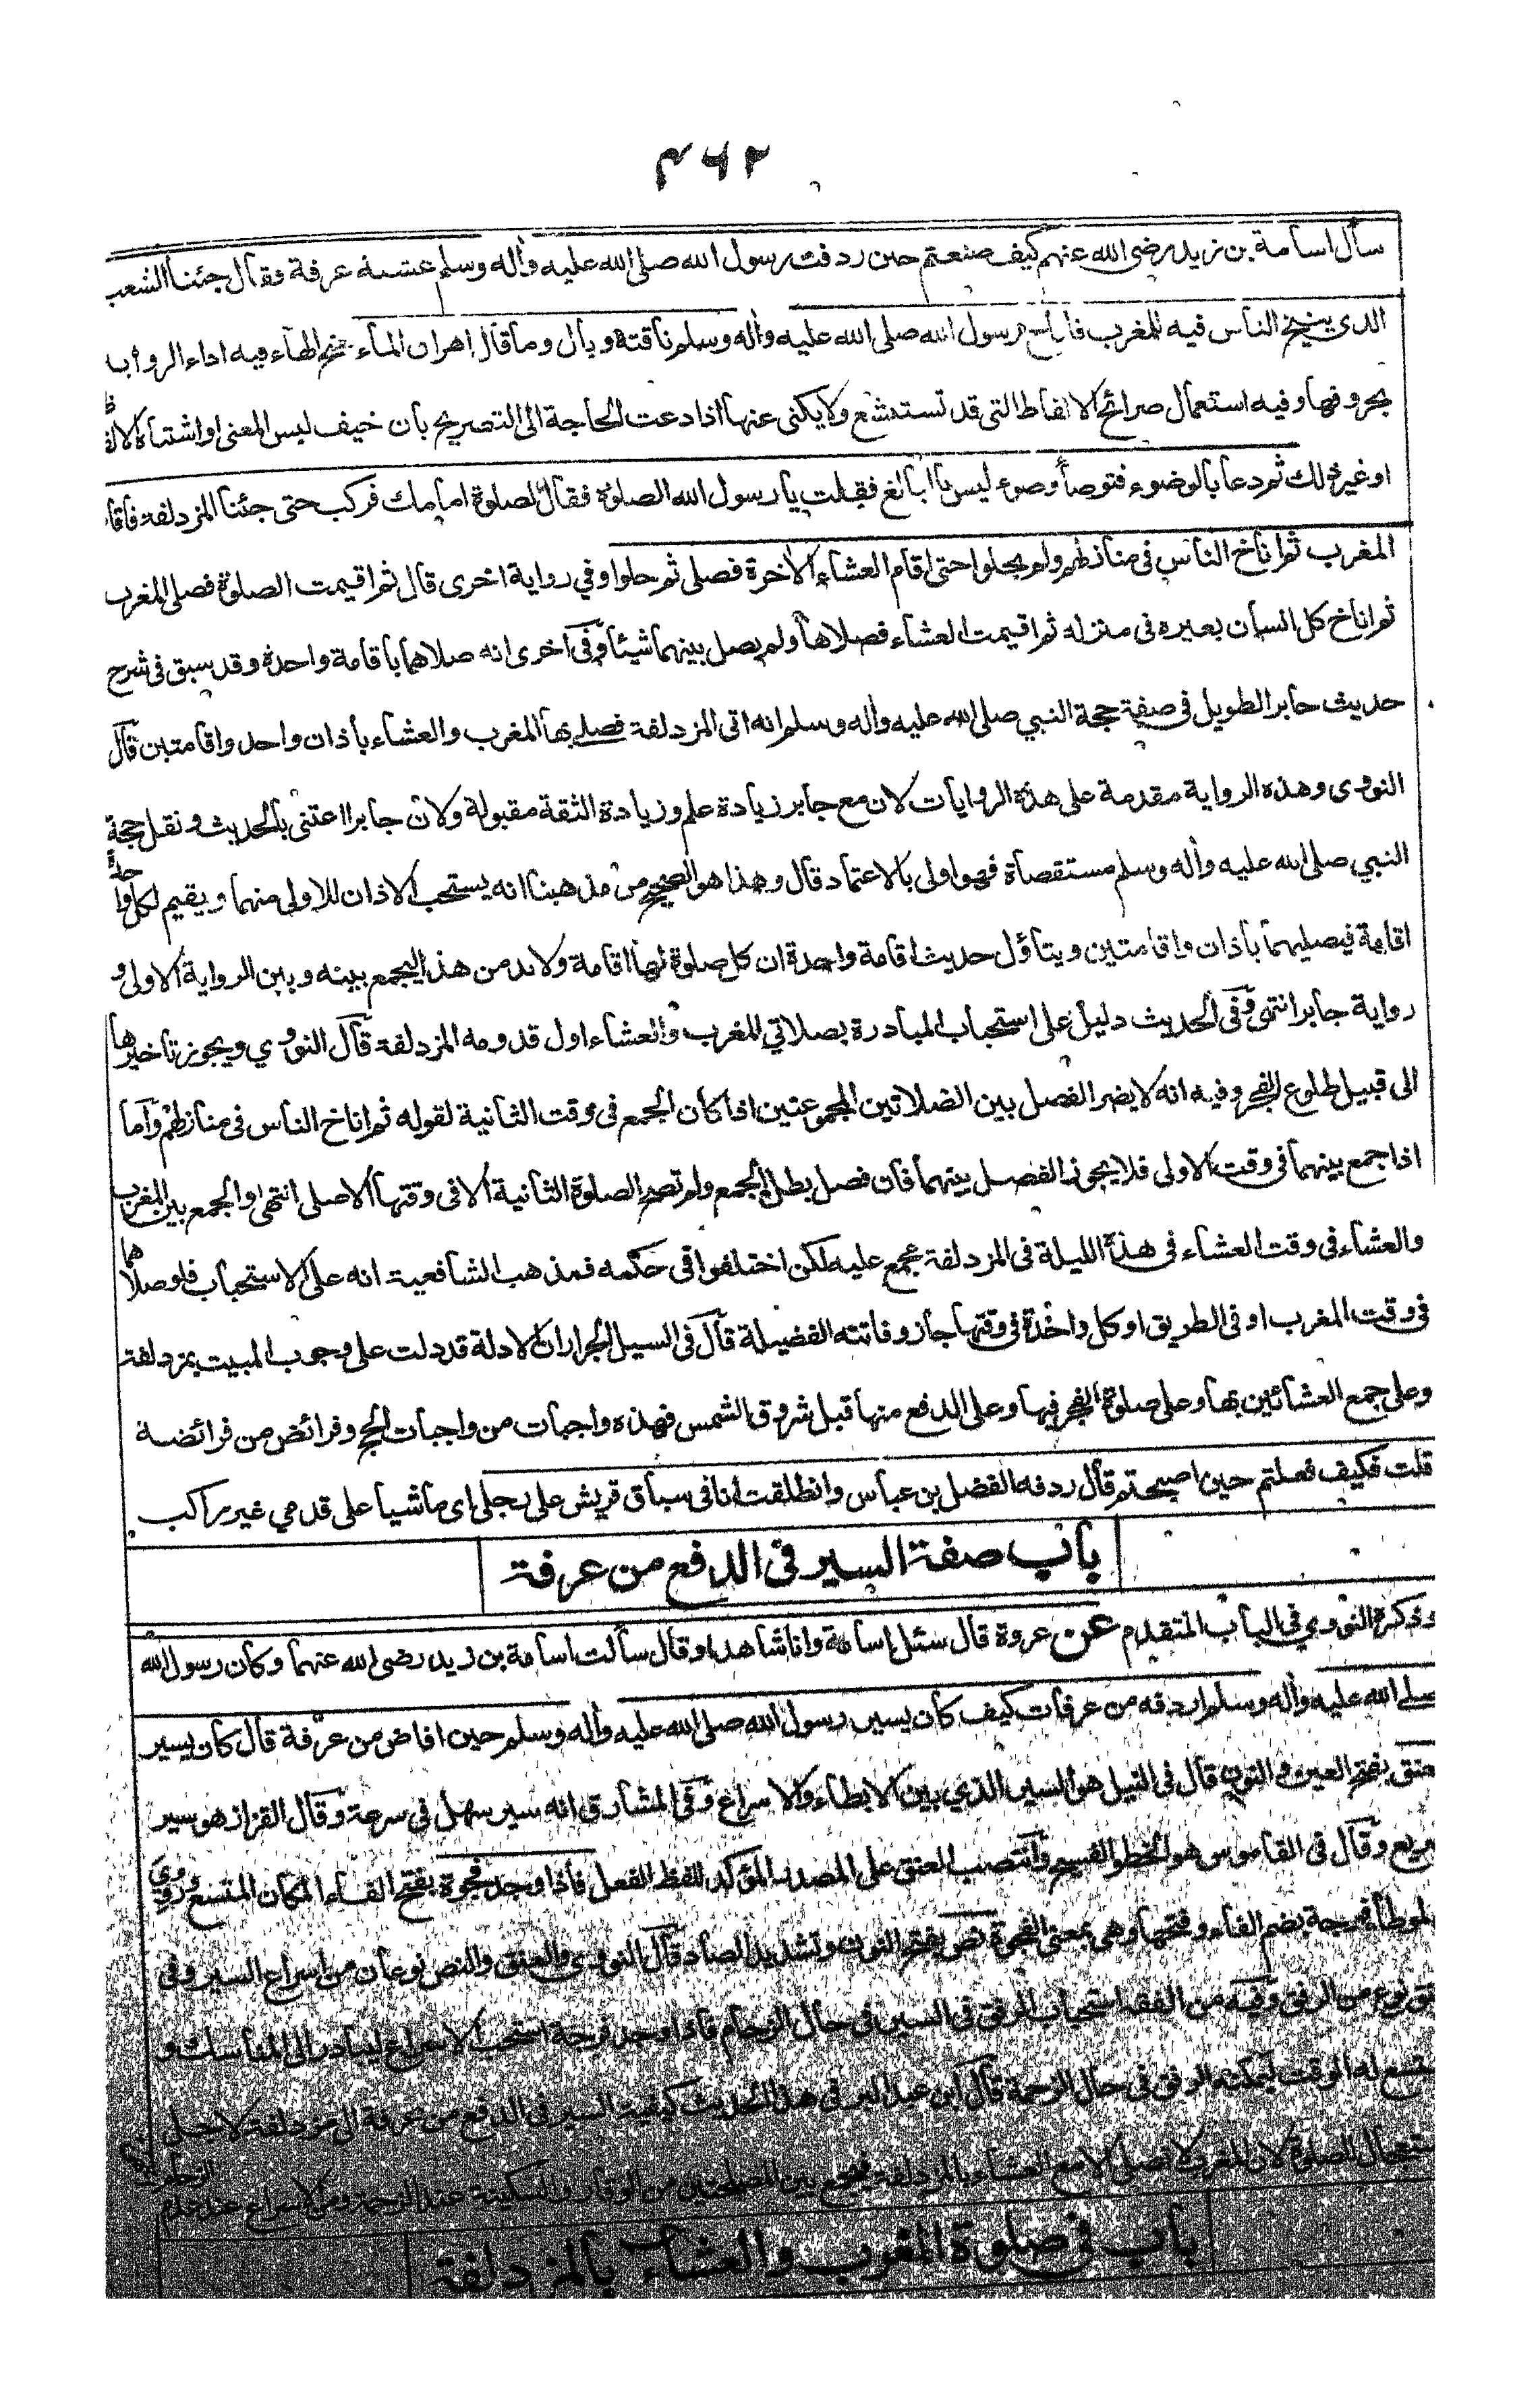 ٤٦٢
سأل اسامة بن زيد رضي الله عنهم كيف صنعتم حين ردفت رسول الله صلى الله عليه وأله وسلم عشية عرفة فقال جئنا الشعب
الذي ينيخ الناس فيه للمغرب فاناخ رسول الله صلى الله عليه وأله وسلم ناقته وبال وما قال اهراق الماء بفتح الهاء فيه اداء الرواية
بحروفها وفيه استعمال صرائح الالفاظ التي قد تستبشع ولا يكنى عنها اذا دعت الحاجة الى التصريح بأن خيف لبس المعنى او اشتباه الالفاظ
او غير ذلك ثم دعا بالوضوء فتوضأ وضوء ليس بالبالغ فقلت يا رسول الله الصلوة فقال الصلوة امامك فركب حتى جئنا المزدلفة فاقام
المغرب ثم اناخ الناس في منازلهم ولم يحلوا حتى اقام العشاء الأخرة فصلى ثم حلوا وفي رواية اخرى قال ثم اقيمت الصلوة فصلى المغرب
ثم اناخ كل انسان بعيره في منزله ثم اقيمت العشاء فصلاها ولم يصل بينهما شيئا وفي اخرى انه صلاهما باقامة واحدة وقد سبق في شرح
حديث جابر الطويل في صفة حجة النبي صلى الله عليه وأله وسلم انه اتى المزدلفة فصلى بها المغرب والعشاء بأذان واحد واقامتين قال
النووي وهذه الرواية مقدمة على هذه الروايات لان مع جابر زيادة علم وزيادة الثقة مقبولة ولان جابرا اعتنى بالحديث ونقل حجة
النبي صلى الله عليه وأله وسلم مستقصاة فهو اولى بالاعتماد قال وهذا هو الصحيح من مذهبنا انه يستحب الاذان للاولى منهما ويقيم لكل واحدة
اقامة فيصليهما بأذان واقامتين ويتأول حديث اقامة واحدة ان كل صلوة لها اقامة ولا بد من هذا ليجمع بينه وبين الرواية الاولى و
رواية جابر انتهى وفي الحديث دليل على استحباب المبادرة بصلاتي المغرب والعشاء اول قدومه المزدلفة قال النووي ويجوز تأخيرها
الى قبيل طلوع الفجر وفيه انه لا يضر الفصل بين الصلاتين المجموعتين اذا كان الجمع في وقت الثانية لقوله ثم اناخ الناس في منازلهم وأما
اذا جمع بينهما في وقت الاولى فلا يجوز الفصل بينهما فأن فصل بطل الجمع ولم تصح الصلوة الثانية الا في وقتها الاصلي انتهى والجمع بين المغرب
والعشاء في وقت العشاء في هذه الليلة في المزدلفة مجمع عليه لكن اختلفوا في حكمه فمذهب الشافعية انه على الاستحباب فلو صلاهما
في وقت المغرب او في الطريق او كل واحدة في وقتها جاز وفاتته الفضيلة قال في السيل الجرار ان الادلة قد دلت على وجوب المبيت بمزدلفة
وعلى جمع العشائين بها وعلى صلوة الفجر فيها وعلى الدفع منها قبل شروق الشمس فهذه واجبات من واجبات الحج وفرائض من فرائضه
قلت فكيف فعلتم حين اصبحتم قال ردفه الفضل بن عباس وانطلقت انا في سباق قريش على رجلي اي ماشيا على قدمي غير راكب
باب صفة السير في الدفع من عرفة
وذكره النووي في الباب المتقدم عن عروة قال سئل اسامة وانا شاهد او قال سألت اسامة بن زيد رضي الله عنهما وكان رسول الله
صلى الله عليه وأله وسلم اردفه من عرفات كيف كان يسير رسول الله صلى الله عليه وأله وسلم حين افاض من عرفة قال كان يسير
العنق بفتح العين والنون قال في النيل هو السير الذي بين الابطاء والاسراع وفي المشارق انه سير سهل في سرعة وقال القزاز هو سير
سريع وقال في القاموس هو الخطو الفسيح وانتصب العنق على المصدر المؤكد للفظ الفعل فأذا وجد فجوة بفتح الفاء المكان المتسع وروي
الموطأ فرجة بضم الفاء وفتحها وهي بمعنى الفجوة نص بفتح النون وتشديد الصاد قال النووي والعنق والنص نوعان من اسراع السير وفي
العنق نوع من الرفق وفيه من الفقه استحباب الرفق في السير في حال الزحام فأذا وجد فرجة استحب الاسراع ليبادر الى المناسك و
ليتسع له الوقت ليمكنه الرفق في حال الزحمة قال ابن عبد البر في هذا الحديث كيفية السير في الدفع من عرفة الى مزدلفة لاجل
استعجال الصلوة لان المغرب لا تصلى الا مع العشاء بالمزدلفة فيجمع بين المصلحتين من الوقار والسكينة عند الزحمة ومن الاسراع عند عدم
باب في صلوة المغرب والعشاء بالمزدلفة